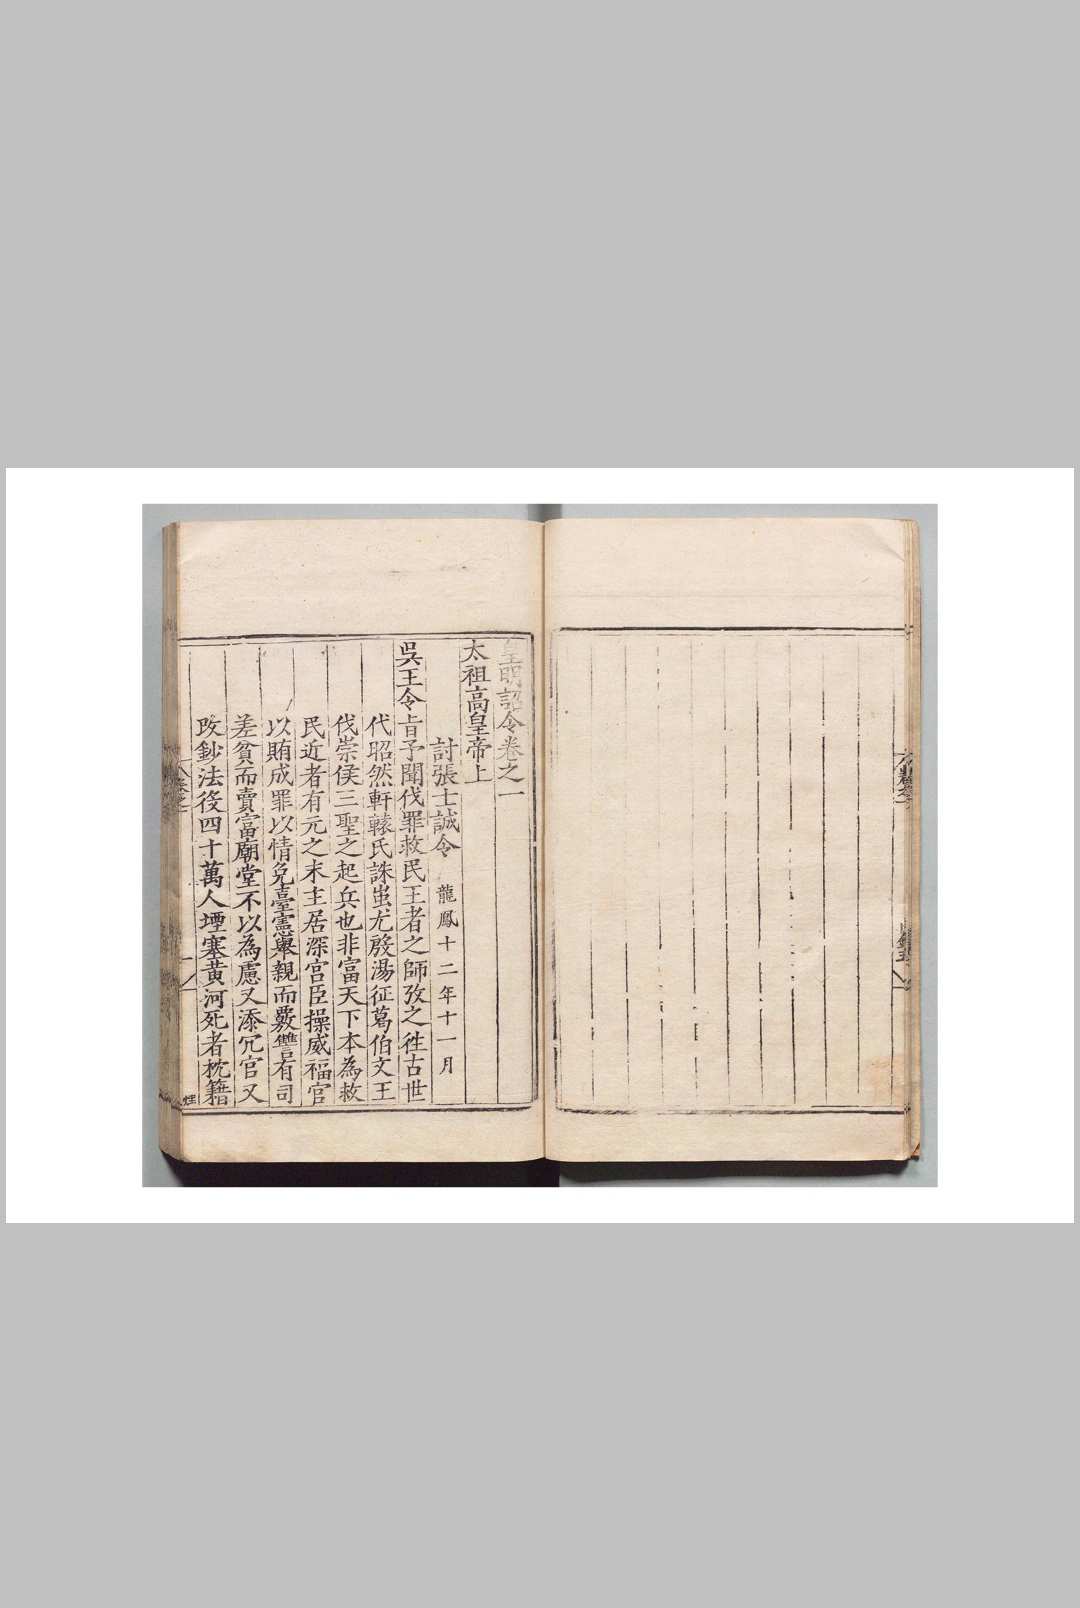 皇明詔令卷之一
太祖高皇帝上
討張士誠令 龍鳳十二年十一月
吳王令旨予聞伐罪救民王者之師攷之徃古世
代昭然軒轅氏誅蚩尤殷湯征葛伯文王
伐崇侯三聖之起兵也非富天下本為救
民近者有元之末主居深宮臣操威福官
以賄成罪以情免臺憲舉親而劾讐有司
差貧而賣富廟堂不以為慮又添冗官又
改鈔法役四十萬人堙塞黃河死者枕籍